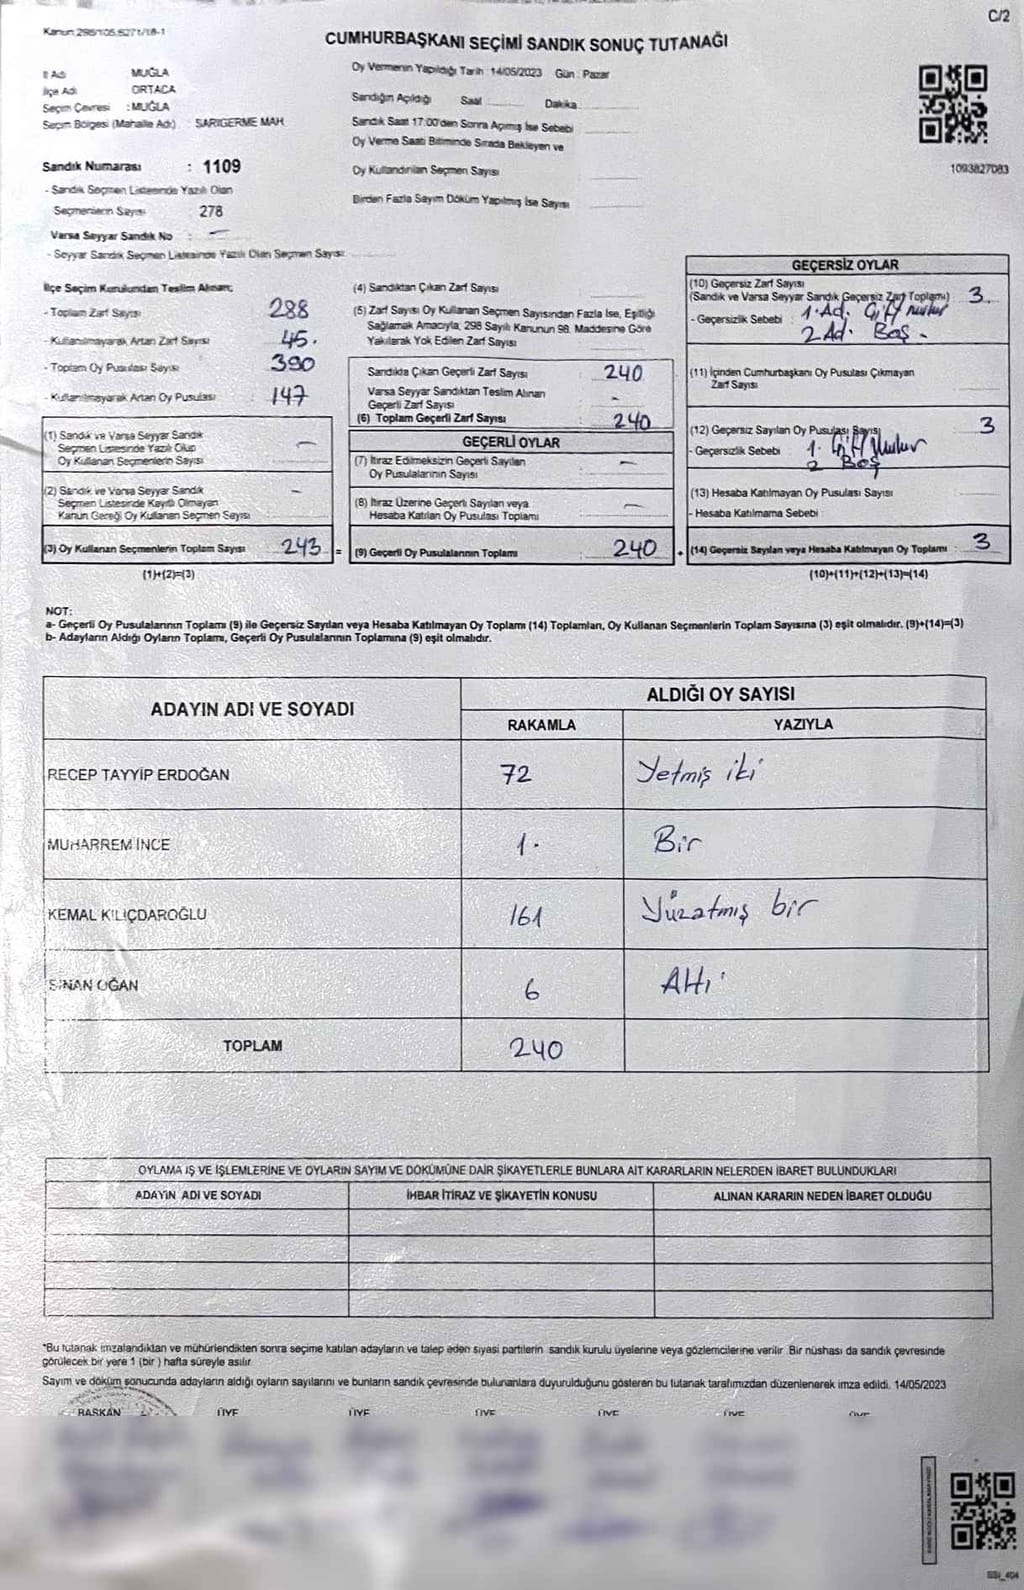 C/2
Kanun: 298/105,6271/18-1
CUMHURBAŞKANI SEÇİMİ SANDIK SONUÇ TUTANAĞI
İl Adı MUĞLA
İlçe Adı ORTACA
Seçim Çevresi : MUĞLA
Seçim Bölgesi (Mahalle Adı) : SARIGERME MAH.
Oy Vermenin Yapıldığı Tarih : 14/05/2023 Gün : Pazar
Sandığın Açıldığı Saat Dakika
Sandık Saat 17:00'den Sonra Açımış İse Sebebi
Oy Verme Saati Bitiminde Sırada Bekleyen ve
Oy Kullandırılan Seçmen Sayısı
Birden Fazla Sayım Döküm Yapılmış İse Sayısı
1093827083
Sandık Numarası : 1109
- Sandık Seçmen Listesinde Yazılı Olan
Seçmenlerin Sayısı 278
Varsa Seyyar Sandık No : -
- Seyyar Sandık Seçmen Listesinde Yazılı Olan Seçmen Sayısı:
İlçe Seçim Kurulundan Teslim Alınan;
- Toplam Zarf Sayısı 288
- Kullanılmayarak Artan Zarf Sayısı 45.
- Toplam Oy Pusulası Sayısı 390
- Kullanılmayarak Artan Oy Pusulası : 147
(1) Sandık ve Varsa Seyyar Sandık
Seçmen Listesinde Yazılı Olup
Oy Kullanan Seçmenlerin Sayısı -
(2) Sandık ve Varsa Seyyar Sandık
Seçmen Listesinde Kayıtlı Olmayan
Kanun Gereği Oy Kullanan Seçmen Sayısı -
(3) Oy Kullanan Seçmenlerin Toplam Sayısı 243 =
(1)+(2)=(3)
(4) Sandıktan Çıkan Zarf Sayısı
(5) Zarf Sayısı Oy Kullanan Seçmen Sayısından Fazla İse, Eşitliği
Sağlamak Amacıyla, 298 Sayılı Kanunun 98. Maddesine Göre
Yakılarak Yok Edilen Zarf Sayısı
Sandıkta Çıkan Geçerli Zarf Sayısı : 240
Varsa Seyyar Sandıktan Teslim Alınan
Geçerli Zarf Sayısı -
(6) Toplam Geçerli Zarf Sayısı : 240
GEÇERLİ OYLAR
(7) İtiraz Edilmeksizin Geçerli Sayılan
Oy Pusulalarının Sayısı -
(8) İtiraz Üzerine Geçerli Sayılan veya
Hesaba Katılan Oy Pusulası Toplamı -
(9) Geçerli Oy Pusulalarının Toplamı 240 +
GEÇERSİZ OYLAR
(10) Geçersiz Zarf Sayısı
(Sandık ve Varsa Seyyar Sandık Geçersiz Zarf Toplamı) 3.
- Geçersizlik Sebebi : 1. Ad. Çift
2 Ad. Boş.
(11) İçinden Cumhurbaşkanı Oy Pusulası Çıkmayan
Zarf Sayısı
(12) Geçersiz Sayılan Oy Pusulası Sayısı 3
- Geçersizlik Sebebi 1. Çift
2 Boş
(13) Hesaba Katılmayan Oy Pusulası Sayısı
- Hesaba Katılmama Sebebi :
(14) Geçersiz Sayılan veya Hesaba Katılmayan Oy Toplamı : 3
(10)+(11)+(12)+(13)=(14)
NOT:
a- Geçerli Oy Pusulalarının Toplamı (9) ile Geçersiz Sayılan veya Hesaba Katılmayan Oy Toplamı (14) Toplamları, Oy Kullanan Seçmenlerin Toplam Sayısına (3) eşit olmalıdır. (9)+(14)=(3)
b- Adayların Aldığı Oyların Toplamı, Geçerli Oy Pusulalarının Toplamına (9) eşit olmalıdır.
ADAYIN ADI VE SOYADI
ALDIĞI OY SAYISI
RAKAMLA YAZIYLA
RECEP TAYYİP ERDOĞAN 72 Yetmiş iki
MUHARREM İNCE 1. Bir
KEMAL KILIÇDAROĞLU 161 Yüzatmış bir
SİNAN OĞAN 6 Altı
TOPLAM 240
OYLAMA İŞ VE İŞLEMLERİNE VE OYLARIN SAYIM VE DÖKÜMÜNE DAİR ŞİKAYETLERLE BUNLARA AİT KARARLARIN NELERDEN İBARET BULUNDUKLARI
ADAYIN ADI VE SOYADI İHBAR İTİRAZ VE ŞİKAYETİN KONUSU ALINAN KARARIN NEDEN İBARET OLDUĞU
*Bu tutanak imzalandıktan ve mühürlendikten sonra seçime katılan adayların ve talep eden siyasi partilerin sandık kurulu üyelerine veya gözlemcilerine verilir. Bir nüshası da sandık çevresinde
görülecek bir yere 1 (bir) hafta süreyle asılır.
Sayım ve döküm sonucunda adayların aldığı oyların sayılarını ve bunların sandık çevresinde bulunanlara duyurulduğunu gösteren bu tutanak tarafımızdan düzenlenerek imza edildi. 14/05/2023
BAŞKAN ÜYE ÜYE ÜYE ÜYE ÜYE ÜYE